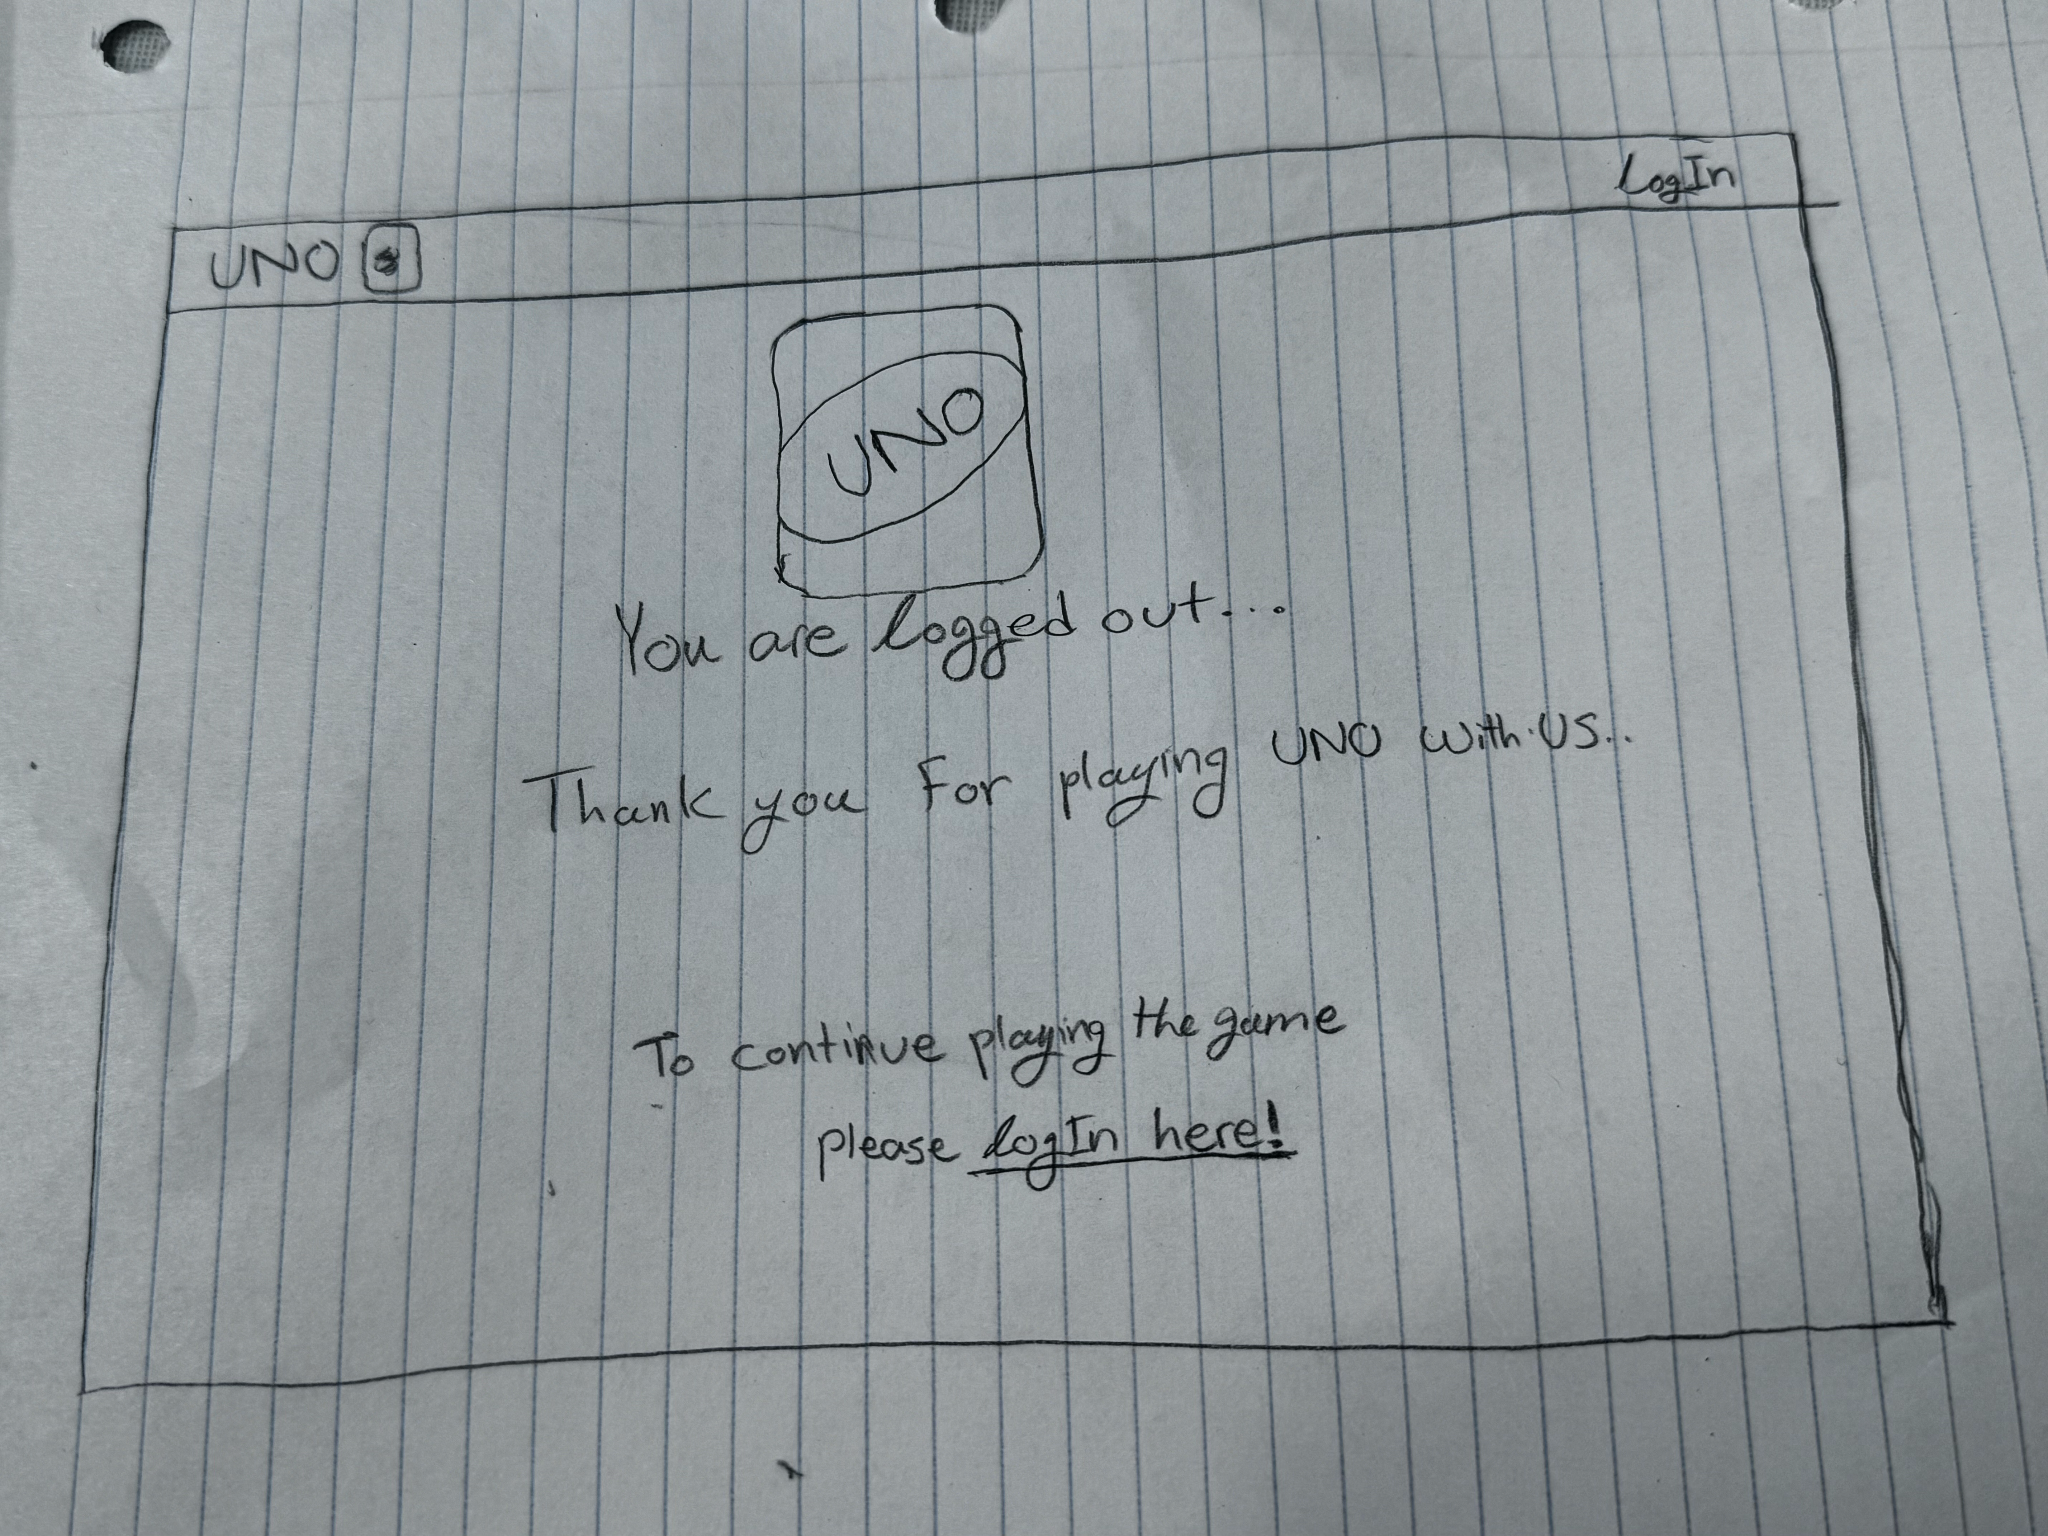 UNO
LogIn
UNO
You are logged out...
Thank you For playing UNO with US..
To continue playing the game
please logIn here!